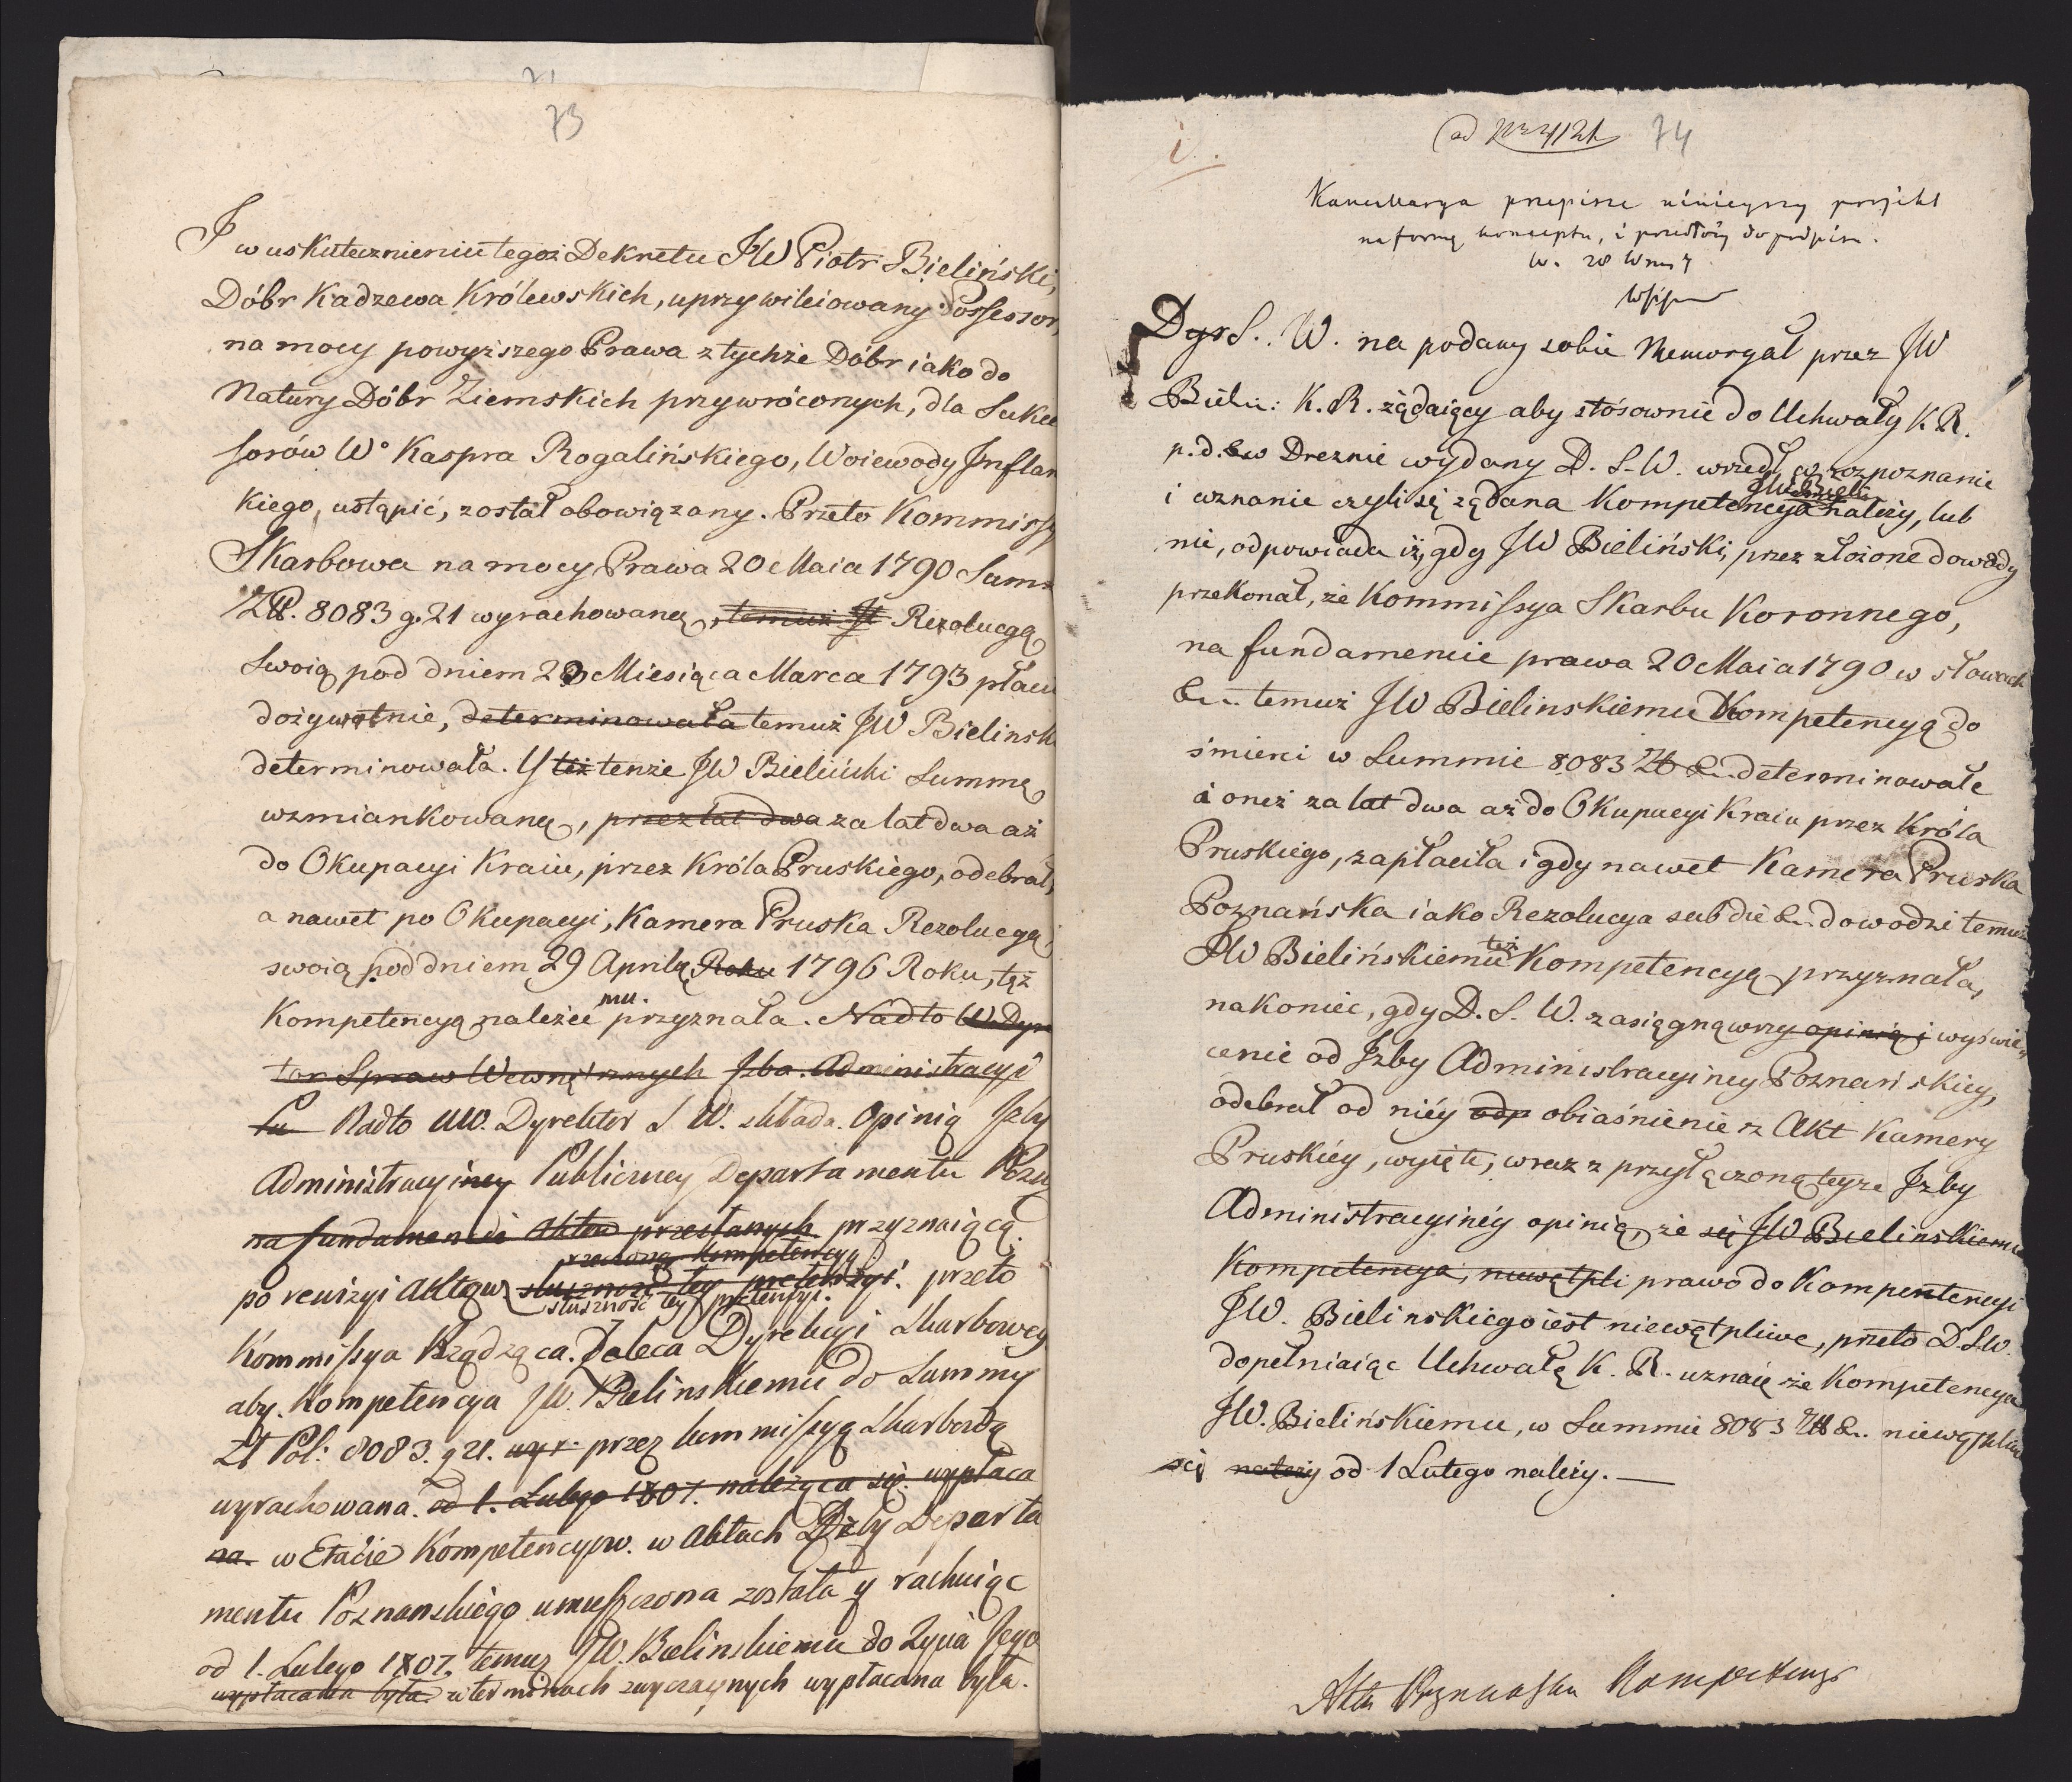 73
I w uskutecznieniu tegoż Dekretu JW Piotr Bieliński,
Dóbr Kadzewa Królewskich, uprzywileiowany Possessor,
na mocy powyższego Prawa z tychże Dóbr iako do
Natury Dóbr Ziemskich przywróconych, dla Sukce
ssorów W° Kaspra Rogalińskiego, Woiewody Inflan
kiego, ustąpić, został obowiązany. Przeto Kommissy
Skarbowa na mocy Prawa 20 Maia 1790 Summ
Zł. 8083 g. 21 wyrachowaną, temuż Rezolucyą
Swoią pod dniem 28 Miesiąca Marca 1793 płacić
dożywotnie, determinowała temuż JW Bielinsk
determinowała. Y też tenże JW Bieliński Summę
wzmiankowaną, przez lat dwa za lat dwa aż
do Okupacyi Kraiu, przez Króla Pruskiego, odebrał,
a nawet po Okupacyi, Kamera Pruska Rezolucyą,
swoią pod dniem 29 Aprilę Roku 1796 Roku, tęż
mu.
Kompetencyą należeć przyznała. Nadto W. Dyre
tor Spraw Wewnętrznych Izba Administracyi
Nadto UW. Dyrektor S W. składa Opinią Izby
Administracyiney Publiczney Departamentu Pozn
na fundamencie Aktow przesłanych przyznaiącą
rzeczoną Kompetencyą
po rewizyi Aktow. słuszność tey pretensyi. przeto
słuszność tey pretensyi.
Kommissya Rządząca. Zaleca Dyrekcyi Skarbowey
aby. Kompetencya JW. Bielinskiemu do Summy
Zł Pol: 8083. g 21. wyr. przez kommissyą Skarbową
wyrachowana. od 1. Lutego 1807. należąca się. wypłaca
na. w Etacie Kompetencyow. w Aktach Izby Departa
mentu Poznanskiego umieszczona została y rachuiąc
od 1. Lutego 1807. temuż JW. Bielinskiemu do życia Jego
wypłacana była. w terminach zwyczaynych wypłacana była.
ad Nrm 4121 74
Kancellarya przepisze ninieyszy proiekt
na formę konceptu, i przedłoży do podpisu.
W. 28
Dyr S.. W. na podany sobie Memoryał przez JW
Bieliń: K. R. żądaiący aby stósownie do Uchwały K R.
p. d. &. w Dreznie wydany D. S. W. wszedł w rozpoznanie
JW. Bieliń
i uznanie czyli się żądana Kompetencya należy, lub
nie, odpowiada iż, gdy JW Bieliński, przez złożone dowody
przekonał, że Kommissya Skarbu Koronnego,
na fundamencie prawa 20 Maia 1790 w słowach
&.. temuż JW Bielinskiemu Kompetencyą do
śmierci w Summie 8083 Zł &.. determinowała
i oneż za lat dwa aż do Okupacyi Kraiu przez Króla
Pruskiego, zapłaciła i gdy nawet Kamera Pruska
Poznańska iako Rezolucya sub die &.. dowodzi temuż
też
JW Bielińskiemu Kompetencyą przyznała,
nakoniec, gdy D. S. W. zasiągnąwszy opinią i wyświe
cenie od Izby Administracyiney Poznańskiey,
odebrał od niéy odp obiaśnienie z Akt Kamery
Pruskiéy, wyięte, wraz z przyłączoną teyże Izby
Administracyinéy opinią, że się JW Bielinskiemu
Kompetencya, niewątpli prawo do Kompentencyi
JW. Bielinskiego iest niewątpliwe, przeto D. S. W.
dopełniaiąc Uchwałę K. R. uznaię że Kompetencya
JW. Bielińskiemu, w Summie 8083 Zł &.. niewątpliwo
ści należy od 1 Lutego należy.
Akta Poznańska Kompetency